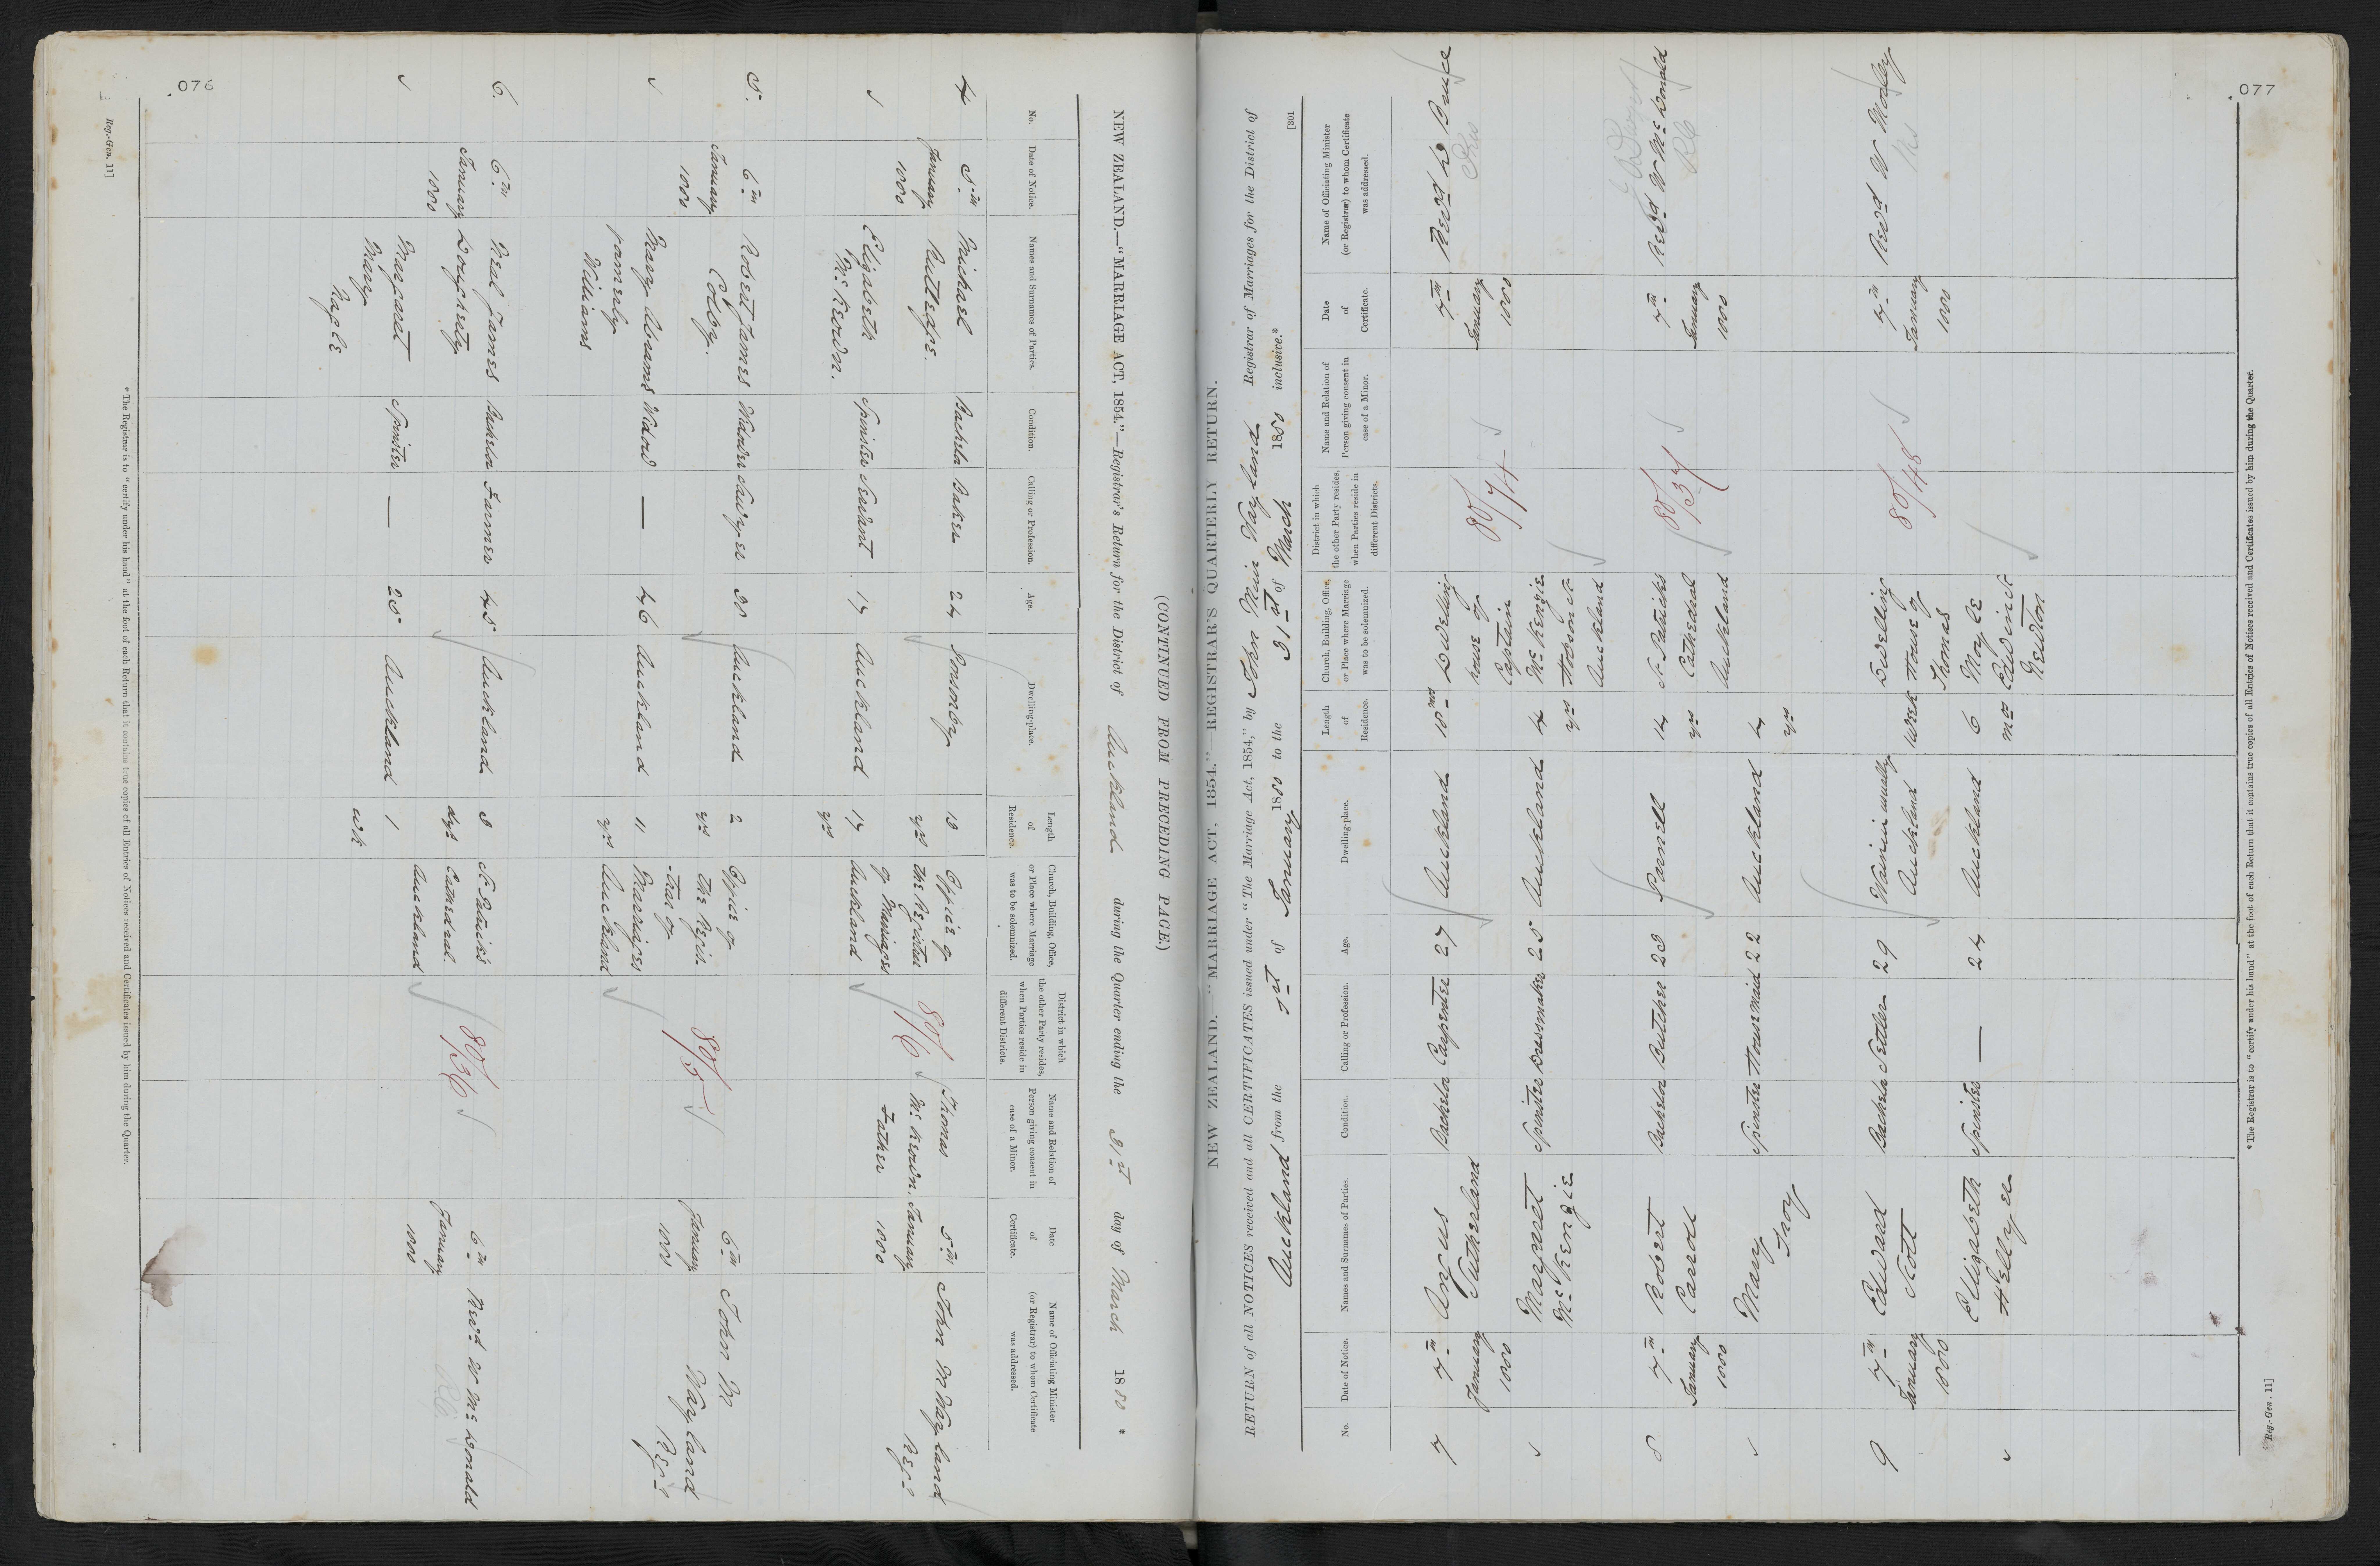 076
(CONTINUED FROM PRECEDING PAGE.)
NEW ZEALAND.—"MARRIAGE ACT, 1854."—Registrar's Return for the District of Auckland during the Quarter ending the 31st day of March 1880 *
No.
Date of Notice.
Names and Surnames of Parties.
Condition.
Calling or Profession.
Age.
Dwelling-place.
Length of Residence.
Church, Building, Office, or Place where Marriage was to be solemnized.
District in which the other Party resides, when Parties reside in different Districts.
Name and Relation of Person giving consent in case of a Minor.
Date of Certificate.
Name of Officiating Minister (or Registrar) to whom Certificate was addressed.
4
5th January 1880
Michael Rutledge.
Bachelor
Baker
24
Ponsonby
13 yrs
Office of the Registrar of Marriages Auckland
80/6
Thomas McKeown, Father
5th January 1880
John M Wayland Regr
Elizabeth McKeown.
Spinster
Servant
17
Auckland
17 yrs
5.
6th January 1880
Robert James Colby.
Widower
Sawyer
38
Auckland
2 yrs
Office of the Regis-trar of Marriages Auckland
80/5
6th January 1880
John M Wayland Regr
Mary Abrams formerly Williams
Widow
—
46
Auckland
11 yrs
6.
6th January 1880
Neal James Dougherty
Bachelor
Farmer
45
Auckland
3 days
St Patricks Cathedral. Auckland
80/36
6th January 1880
Revd W McDonald
RC
Margaret Mary Nagle
Spinster
—
25
Auckland
1 wk
* The Registrar is to "certify under his hand" at the foot of each Return that it contains true copies of all Entries of Notices received and Certificates issued by him during the Quarter.
Reg.-Gen. 11]
077
NEW ZEALAND.—"MARRIAGE ACT, 1854."—REGISTRAR'S QUARTERLY RETURN.
RETURN of all NOTICES received and all CERTIFICATES issued under "The Marriage Act, 1854," by John Muir Wayland Registrar of Marriages for the District of
Auckland from the 1st of January 1880 to the 31st of March 1880 inclusive.*
[301
No.
Date of Notice.
Names and Surnames of Parties.
Condition.
Calling or Profession.
Age.
Dwelling-place.
Length of Residence.
Church, Building, Office, or Place where Marriage was to be solemnized.
District in which the other Party resides, when Parties reside in different Districts.
Name and Relation of Person giving consent in case of a Minor.
Date of Certificate.
Name of Officiating Minister (or Registrar) to whom Certificate was addressed.
7
7th January 1880
Angus Sutherland
Bachelor
Carpenter
27
Auckland
18 mos
Dwelling house of Captain McKenzie Hobson St Auckland
80/74
7th January 1880
Revd D Bruce
Pres
Margaret McKenzie
Spinster
Dressmaker
25
Auckland
4 yrs
8
7th January 1880
Robert Carroll
Bachelor
Butcher
23
Parnell
14 yrs
St Patricks Cathedral Auckland
80/37
7th January 1880
Revd W McDonald
RC
Mary Troy
Spinster
Housemaid
22
Auckland
4 yrs
9
7th January 1880
Edward Nott
Bachelor
Settler
29
Auckland
1 week
Dwelling House of Thomas Moyle Edwin St Newton
80/48
7th January 1880
Revd W Morley
Elizabeth Hellyer
Spinster
—
24
Auckland
6 mos
* The Registrar is to "certify under his hand" at the foot of each Return that it contains true copies of all Entries of Notices received and Certificates issued by him during the Quarter.
Reg.-Gen. 11]